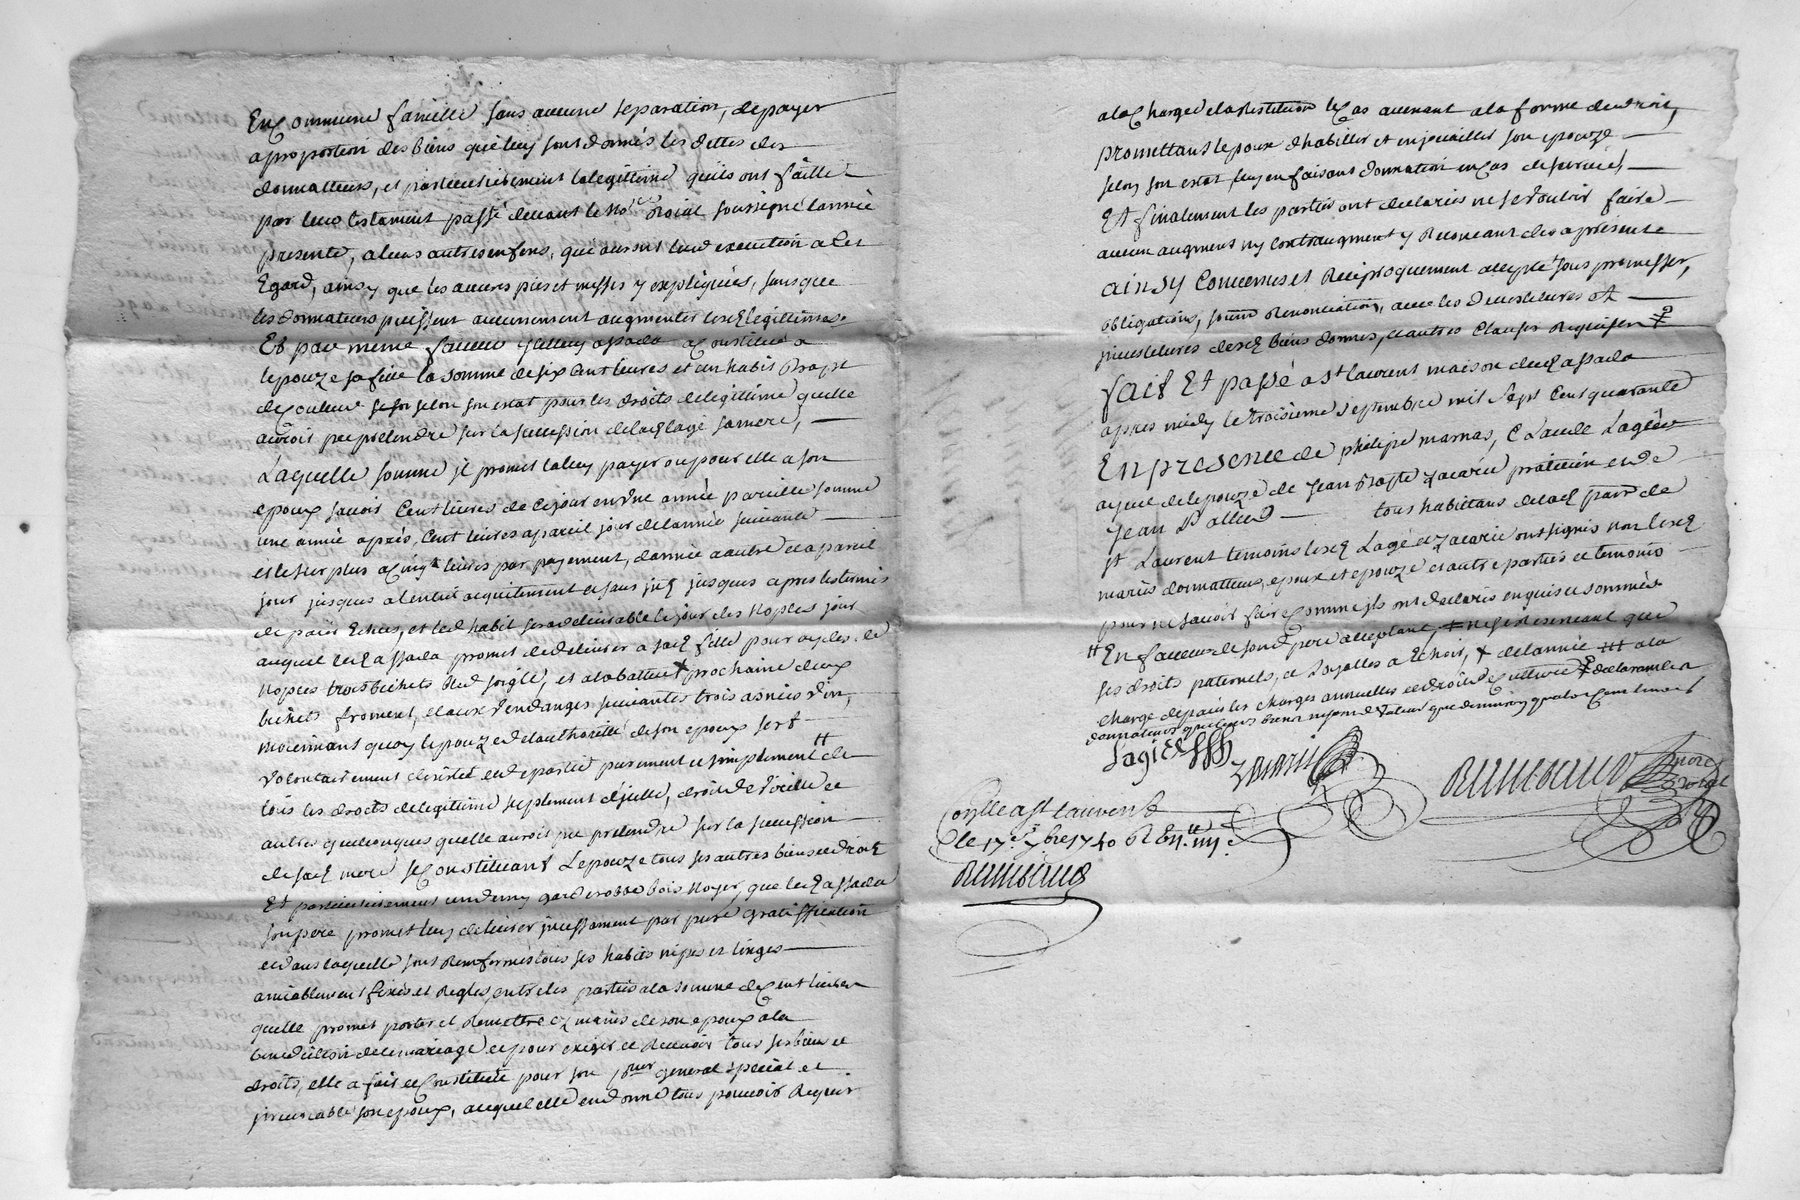 En commune famille sans aucune separation, de payer
a proportion des biens que leurs sont donnés les dettes des
donnatteurs, et particulierement la legittime quils ont faitte
par leur testament passé devant le No.re Roial soussigné lannée
presente, a leurs autres enfens, que aura son execution a cet
Egard, ainsy que les œuvres pies et messes y expliquées, sans que
les donnateurs puissent aucunement augmenter lesd legittimes.
Et par meme faveur assada a constitué a
lepouze sa fille la somme de six cent livres et un habit Drapt
de couleur selon son estat pour les droits de legittime quelle
auroit peu pretendre sur la succession de lad lagé sa mere,
Laquelle somme il promet luy payer ou pour elle a son
epoux savoir Cent livres de ce jour en une année pareille somme
une année aprés, Cent livres a pareil jour de lannée suivante
et le surplus a cinqt livres par payement, dannée a autre et a pareil
jour jusques a lentier acquitement et sans jusques apres les termes
de paies Echus, et led habit sera delivrable le jour des Nopces jour
auquel led assada promet de delivrer a sad fille pour
Nopces trois bichets bled soigle, et a la battue ╳ prochaine deux
bichets froment, et aux vendanges suivantes trois asnées vin,
moiennant quoy lepouze de lauthorité de son epoux sest
volontairement desistée et departie purement et simplement ⧺ de
tous les droits de legittime suplement dicelle, droits de et
autres quelconques quelle auroit peu pretendre sur la succession
de sad mere se constituant Lepouze tous ses autres biens et droits
Et particulierement un demy garderobbe bois Noyer, que led assada
son pere promet luy delivrer incessament par pure gratiffication
et dans laquelle sont Renfermés tous ses habits nipes et linges
amiablement fixés et Reglés entre les parties a la somme de Cent livres
quelle promet porter et Remettre ez mains de son epoux a la
benediction de le mariage et pour exiger et Recevoir tous ses biens et
droits, elle a fait et Constitué pour son general special et
irrevocable son epoux, auquel elle en donne tous pouvoirs Requis
a la Charge de la Restitution le Cas avenant a la forme du droit,
promettant lepoux dhabiller et enjouailler son epouze
selon son estat luy en faisant donnation en cas de survie,
Et finalement les parties ont declarées ne se vouloir faire
aucun augment ny contraugment y Renonceant des a présent
ainsy Convenus et Reciproquement accepté sous promesses,
obligations, soum Renonciations, avec les devestitures et
investitures desd biens donnés, et autres Clauses Requises
Fait Et passé a St laurent maison dud assada
apres midy le troisieme septembre mil sept Cent quarante
En presence de philipe marnas, Claude Lagé
ayeul de lepouze de Jean Bapte Zacarie praticien et de
Jean tous habittans de lad parr de
St Laurent temoins lesd Lagé et Zacarie ont signés non lesd
mariés donnatteurs, epoux et epouze et autre parties et temoins
pour ne savoir faire comme ils ont declarés enquis et sommés
⧺ En faveur de sond pere acceptant, ne se Reserveant que
ses droits paternels, et Loyalles a Echoir, ╳ de lannée a la
charge de paier les charges annuelles et droits de culture
donnateurs quelques biens de valeur que denviron quatre cent livres
Lagié Zacarie Raimbaud Notre Roial
Conttle a St Laurent
le 17e 7bre 1740 R En.
Raimbaud